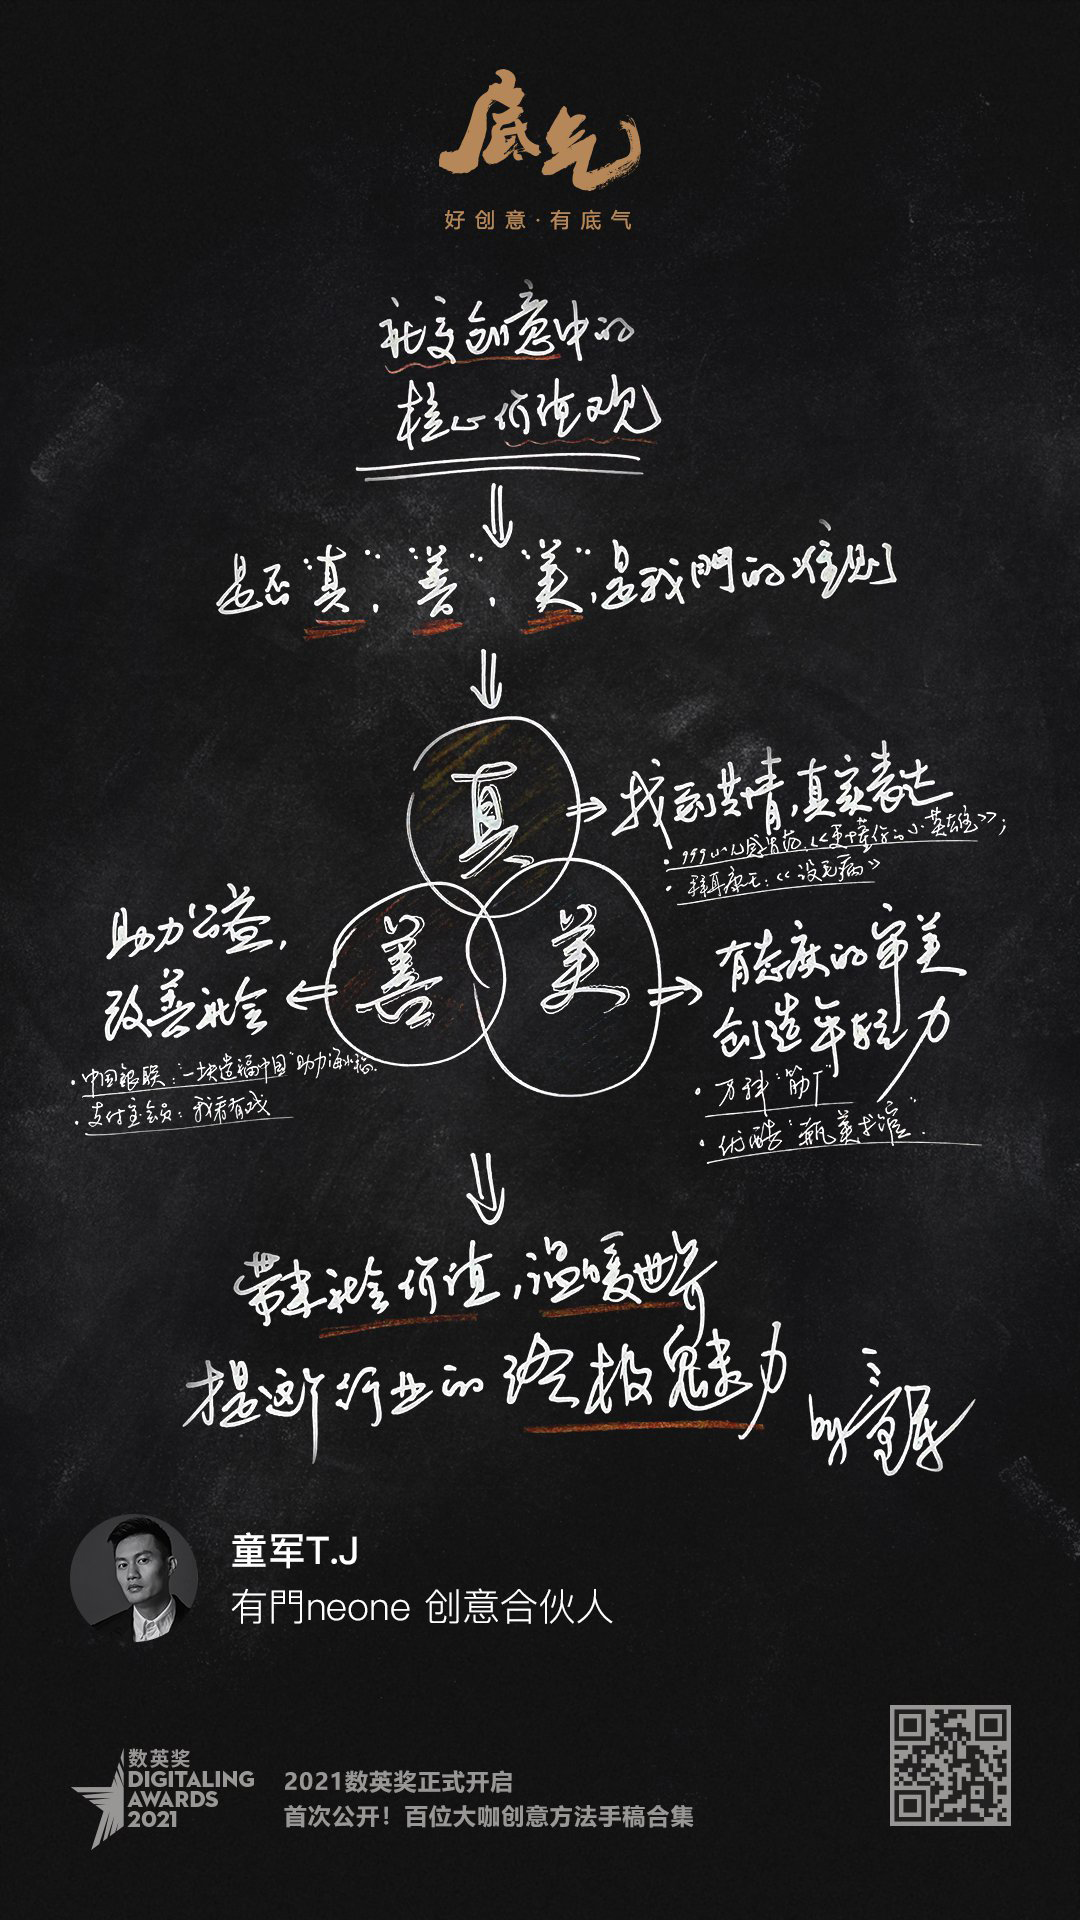 底气
好创意·有底气
社交创意中的
核心价值观
是否“真”,“善”,“美”,是我門的准则
真
找到共情,真实表达
·999小儿感冒药:《更懂你的小英雄》;
·拜耳康王:《没毛病》
善
美
助力公益,
改善社会
·中国银联:“一块造福中国”助力海水稻.
·支付宝会员:我君有戏
有态度的审美
创造年轻力
·万科“筋厂”
·优酷“瓶美术馆”.
带来社会价值,温暖世界
才是这个行业的终极魅力
by 童军
童军T.J
有門neone 创意合伙人
数英奖
DIGITALING
AWARDS
2021
2021数英奖正式开启
首次公开!百位大咖创意方法手稿合集